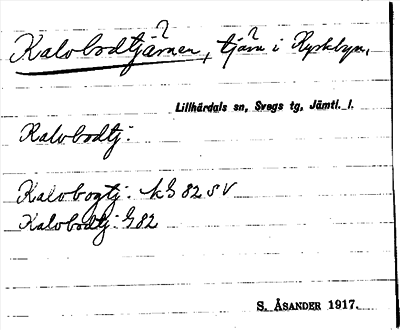 Kalvbodtjärnen, tjärn i Kyrkbyn,
Lillhärdals sn, Svegs tg, Jämtl. l.
Kalvbodtj.
Kalvbogtj. kG 82 SV
Kalvbodtj. G 82
S. ÅSANDER 1917.